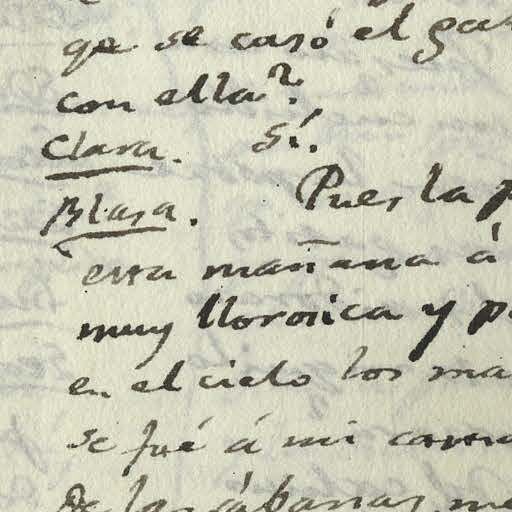 qe se casó el ga
con ella?
Clara. Sí.
Blasa. Pues la p
esta mañana á
muy lloronica y p
en el cielo los ma
se fué á mi
De las sábanas, me